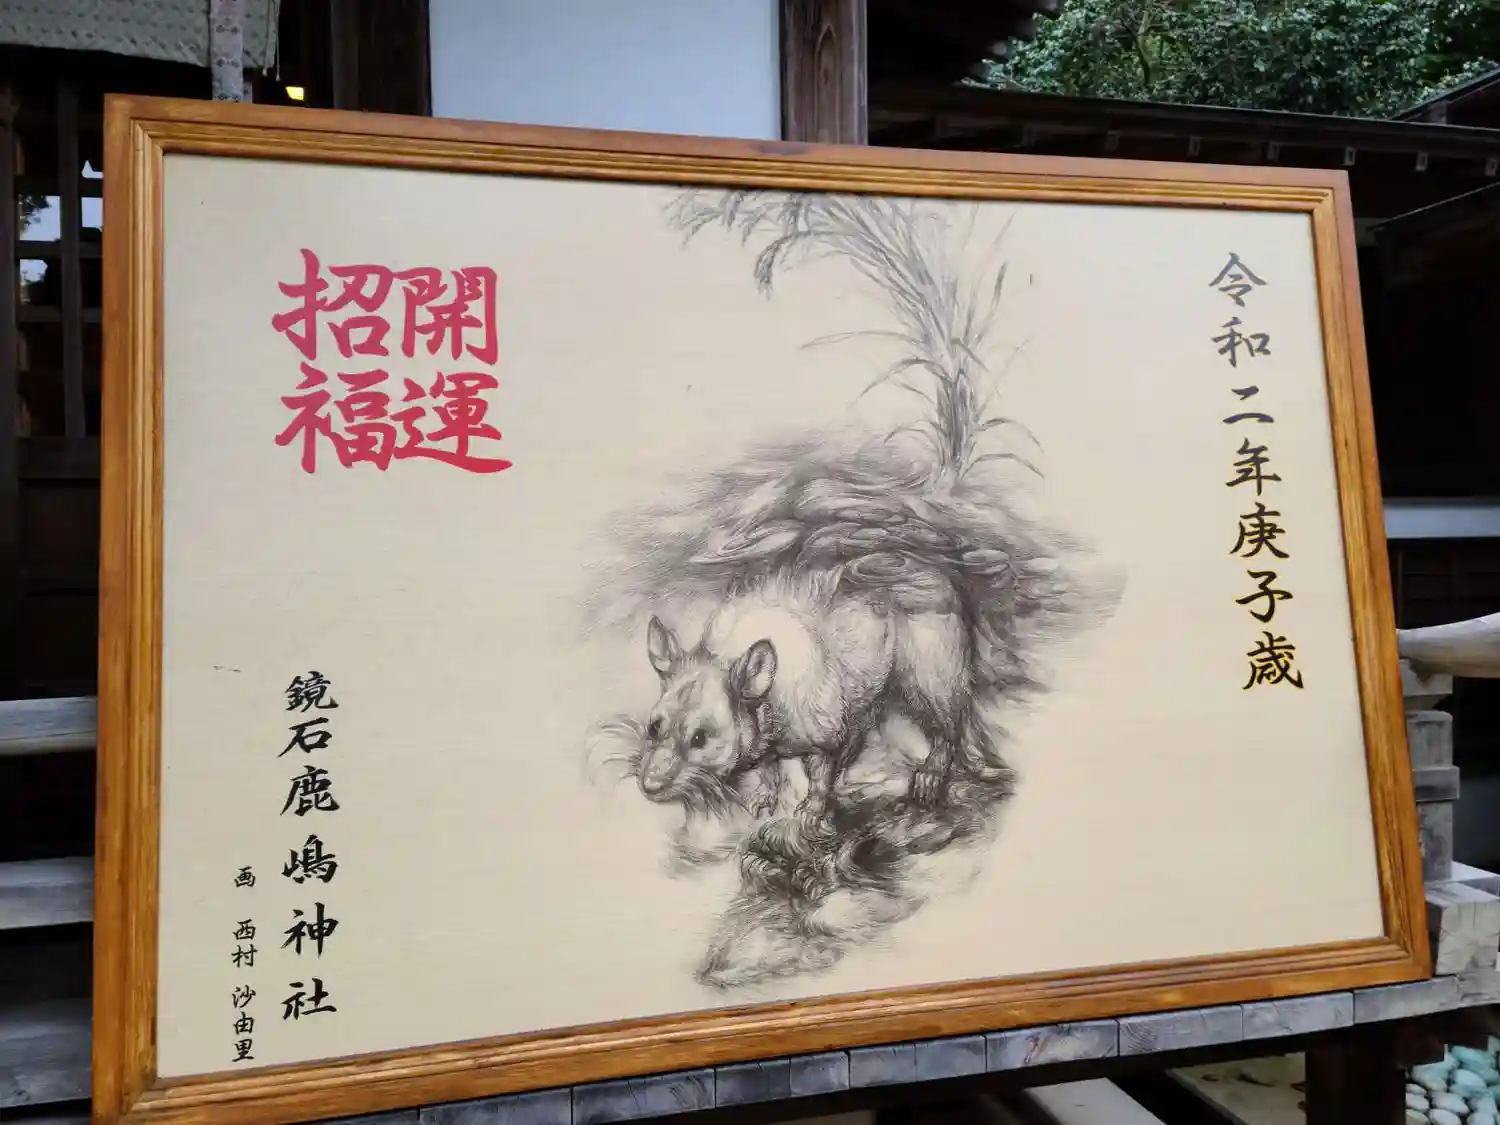 令和二年庚子歳
開運
招福
鏡石鹿嶋神社
画 西村 沙由里